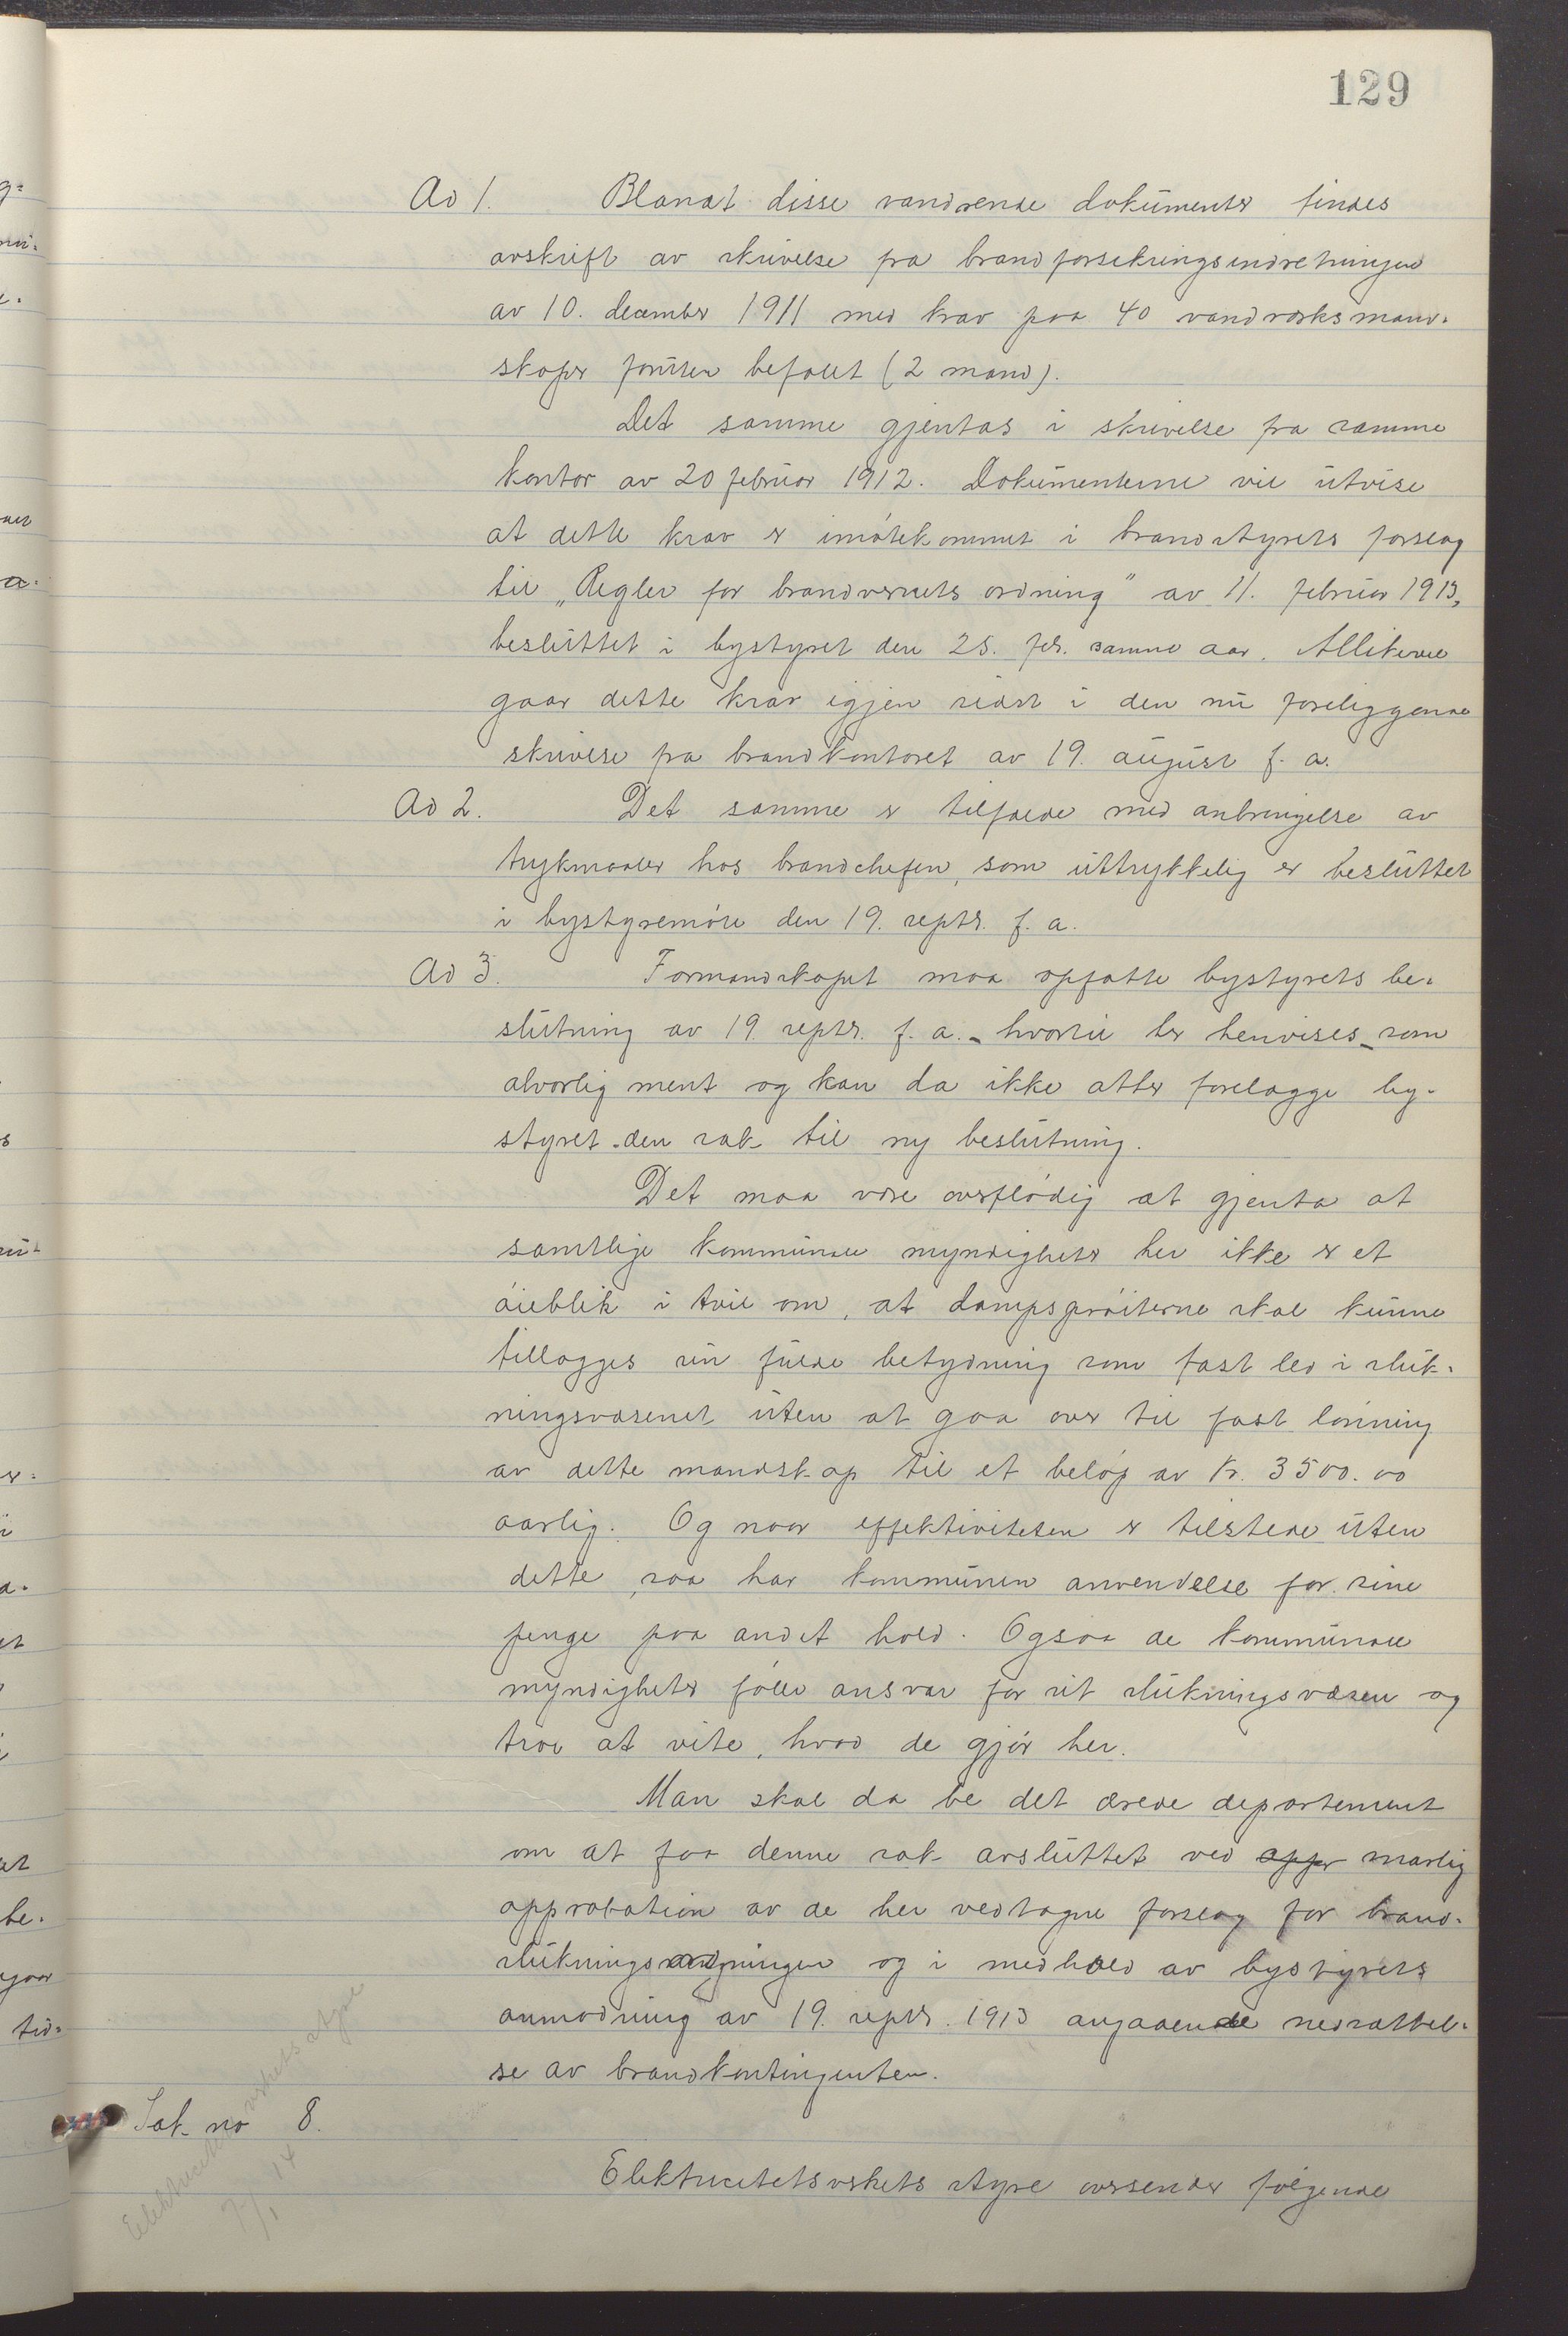 129
Ad 1. Blandt disse vandrende dokumenter findes
avskrift av skrivelse fra brandforsikringsindretningen
av 10. december 1911 med krav paa 40 vandværksmand-
skaper foruten befalet (2 mand).
Det samme gjentas i skrivelse fra samme
kontor av 20 februar 1912. Dokumenterne vil utvise
at dette krav er imøtekommet i brandstyrets forslag
til „Regler for brandvernets ordning" av 11. februar 1913,
besluttet i bystyret den 25. febr. samme aar. Allikevel
gaar dette krav igjen sidst i den nu foreliggende
skrivelse fra brandkontoret av 19. august f. a.
Ad 2. Det samme er tilfælde med anbringelse av
trykmaaler hos brandchefen, som uttrykkelig er besluttet
i bystyremøte den 19. septr. f. a.
Ad 3. Formandskapet maa opfatte bystyrets be-
slutning av 19. septr. f. a. - hvortil her henvises - som
alvorlig ment og kan da ikke atter forelægge by-
styret den sak til ny beslutning.
Det maa være overflødig at gjenta at
samtlige kommunale myndigheter her ikke er et
øieblik i tvil om, at dampsprøiterne skal kunne
tillægges sin fulde betydning som fast led i sluk-
ningsvæsenet uten at gaa over til fast lønning
av dette mandskap til et beløp av kr. 3500.00
aarlig. Og naar effektiviteten er tilstede uten
dette, saa har kommunen anvendelse for sine
penge paa andet hold. Ogsaa de kommunale
myndigheter føler ansvar for sit slukningsvæsen og
tror at vite, hvad de gjør her.
Man skal da be det ærede departement
om at faa denne sak avsluttet ved appr snarlig
approbation av de her vedtagne forslag for brand-
slukningsordningen og i medhold av bystyrets
anmodning av 19. septr. 1913 angaaende nedsættel-
se av brandkontingenten.
Sak no 8.
Elektricitetsverkets styre
7/1 14
Elektricitetsverkets styre oversender følgende